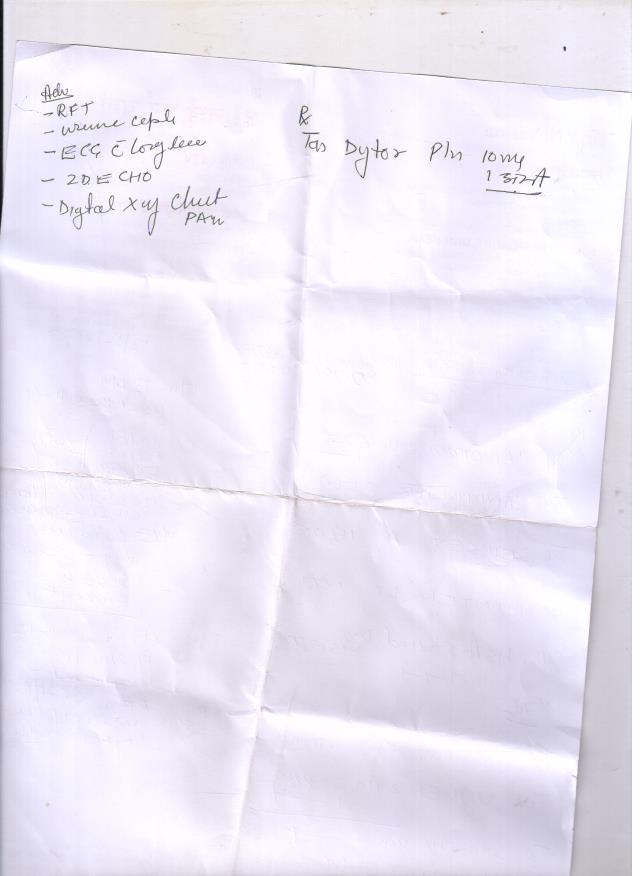 Adv
- RFT
- urine
- ECG c̄ long lead
- 2D ECHO
- Digtal Xray Chest
PA
Rx
Tab Dytor Pls 10mg
1